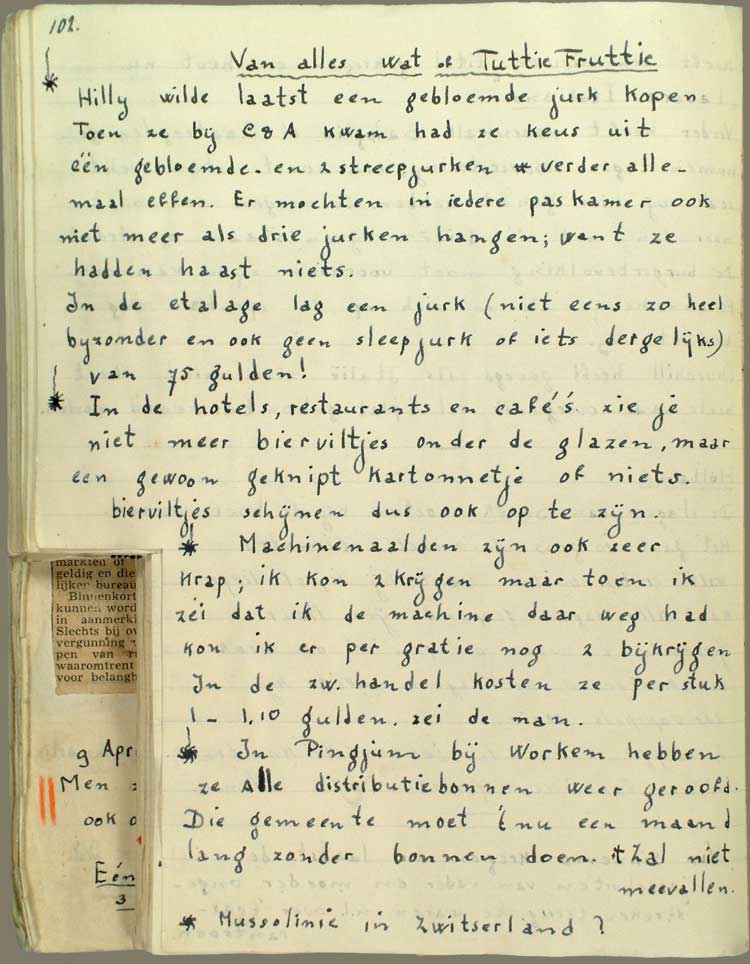 102.
Van alles wat of Tuttie Fruttie
* Hilly wilde laatst een gebloemde jurk kopen
Toen ze bij C&A kwam had ze keus uit
één gebloemde- en 2 streepjurken verder alle-
maal effen. Er mochten in iedere paskamer ook
niet meer als drie jurken hangen; want ze
hadden haast niets.
In de etalage lag een jurk (niet eens zo heel
byzonder en ook geen sleepjurk of iets dergelijks)
van 75 gulden!
* In de hotels, restaurants en café's zie je
niet meer bierviltjes onder de glazen, maar
een gewoon geknipt kartonnetje of niets.
bierviltjes schijnen dus ook op te zijn.
* Machinenaalden zijn ook zeer
krap; ik kon 2 krijgen maar toen ik
zei dat ik de machine daar weg had
kon ik er per gratie nog 2 bijkrijgen
In de zw. handel kosten ze per stuk
1 - 1,10 gulden. zei de man.
* In Pingjum bij Workem hebben
ze Alle distributiebonnen weer geroofd.
Die gemeente moet 't nu een maand
lang zonder bonnen doen. 't Zal niet
meevallen.
* Mussolinie in Zwitserland?
markten of
geldig en die
lijker bureau
Binnenkort
kunnen word
in aanmerki
Slechts bij ov
vergunning
pen van
waaromtrent
voor belangh
9 Apr
Men
ook
Eén
3